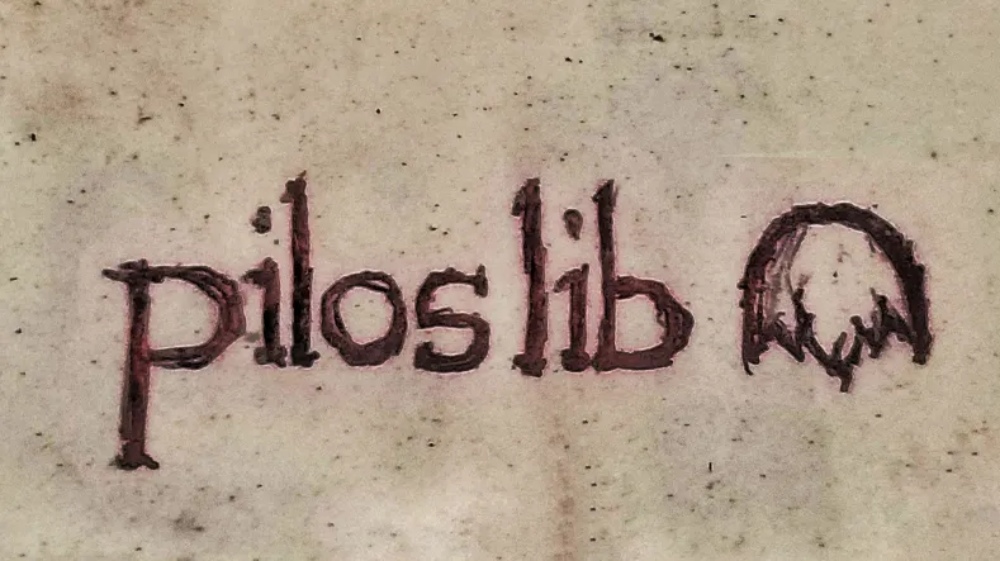 pilos lib